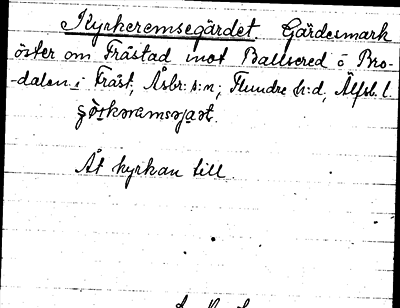 Kyrkeremsegärdet. Gärdesmark
öster om Fråstad mot Ballsered ö Bro-
-dalen i Fråst, Åsbr: s:n, Flundre h:d, Älfsb. l.
Åt kyrkan till.